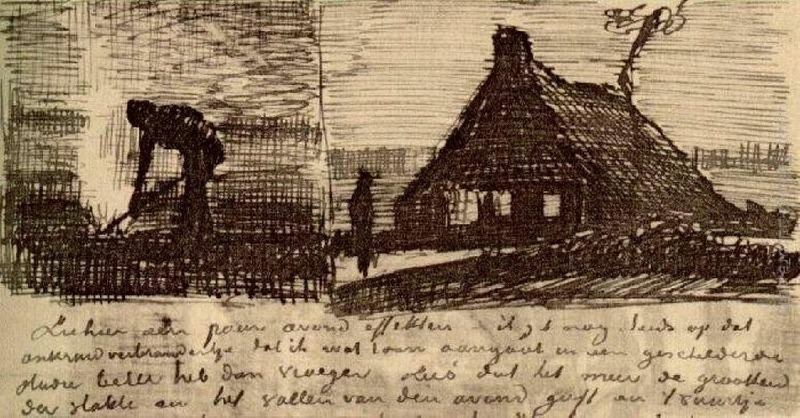 Ziehier een paar avond effekten - ik zit nog steeds op dat
onkruidverbrandertje dat ik wat toon aangaat in een geschilderde
studie beter heb dan vroeger zóó dat het meer de grootheid
der vlakte en het vallen van den avond geeft en 't vuurtje